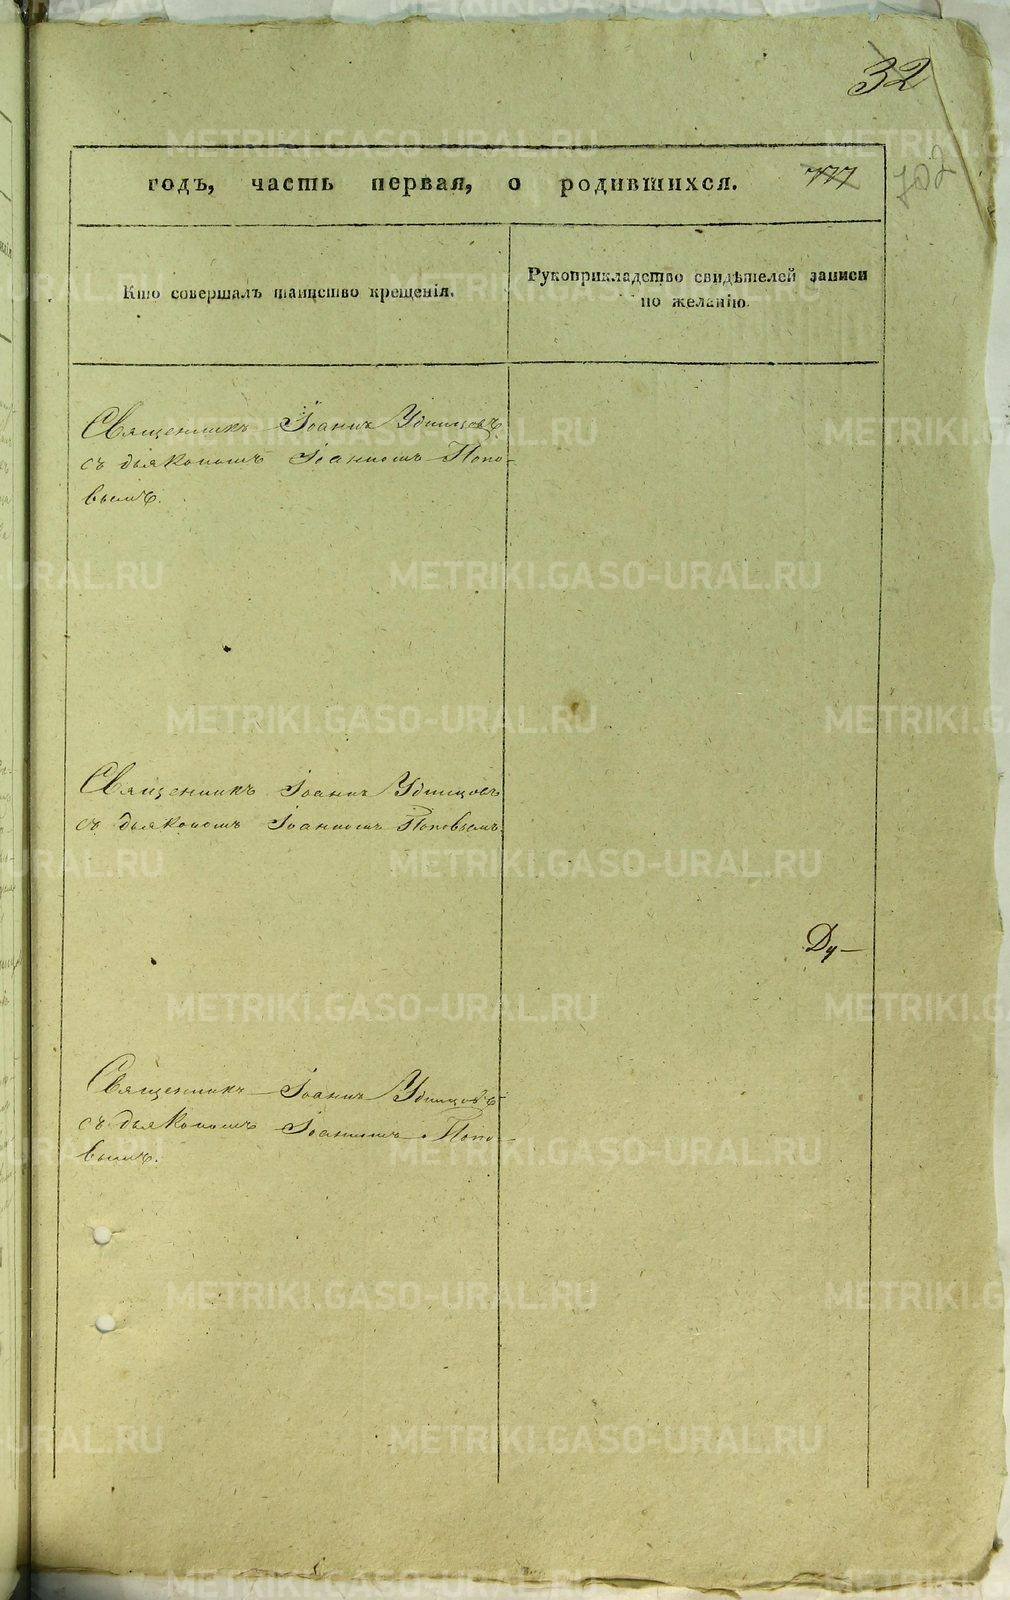 32
годъ, часть первая, о родившихся. 777 702
Кто совершалъ таинство крещенія.
Рукоприкладство свидѣтелей записи
по желанію.
Священникъ Іоаннъ Удинцовъ
съ дьякономъ Іоанномъ Попо-
вымъ.
Священникъ Іоаннъ Удинцовъ
съ дьякономъ Іоанномъ Поповымъ.
Ду-
Священникъ Іоаннъ Удинцовъ
съ дьякономъ Іоанномъ Попо-
вымъ.
METRIKI.GASO-URAL.RU